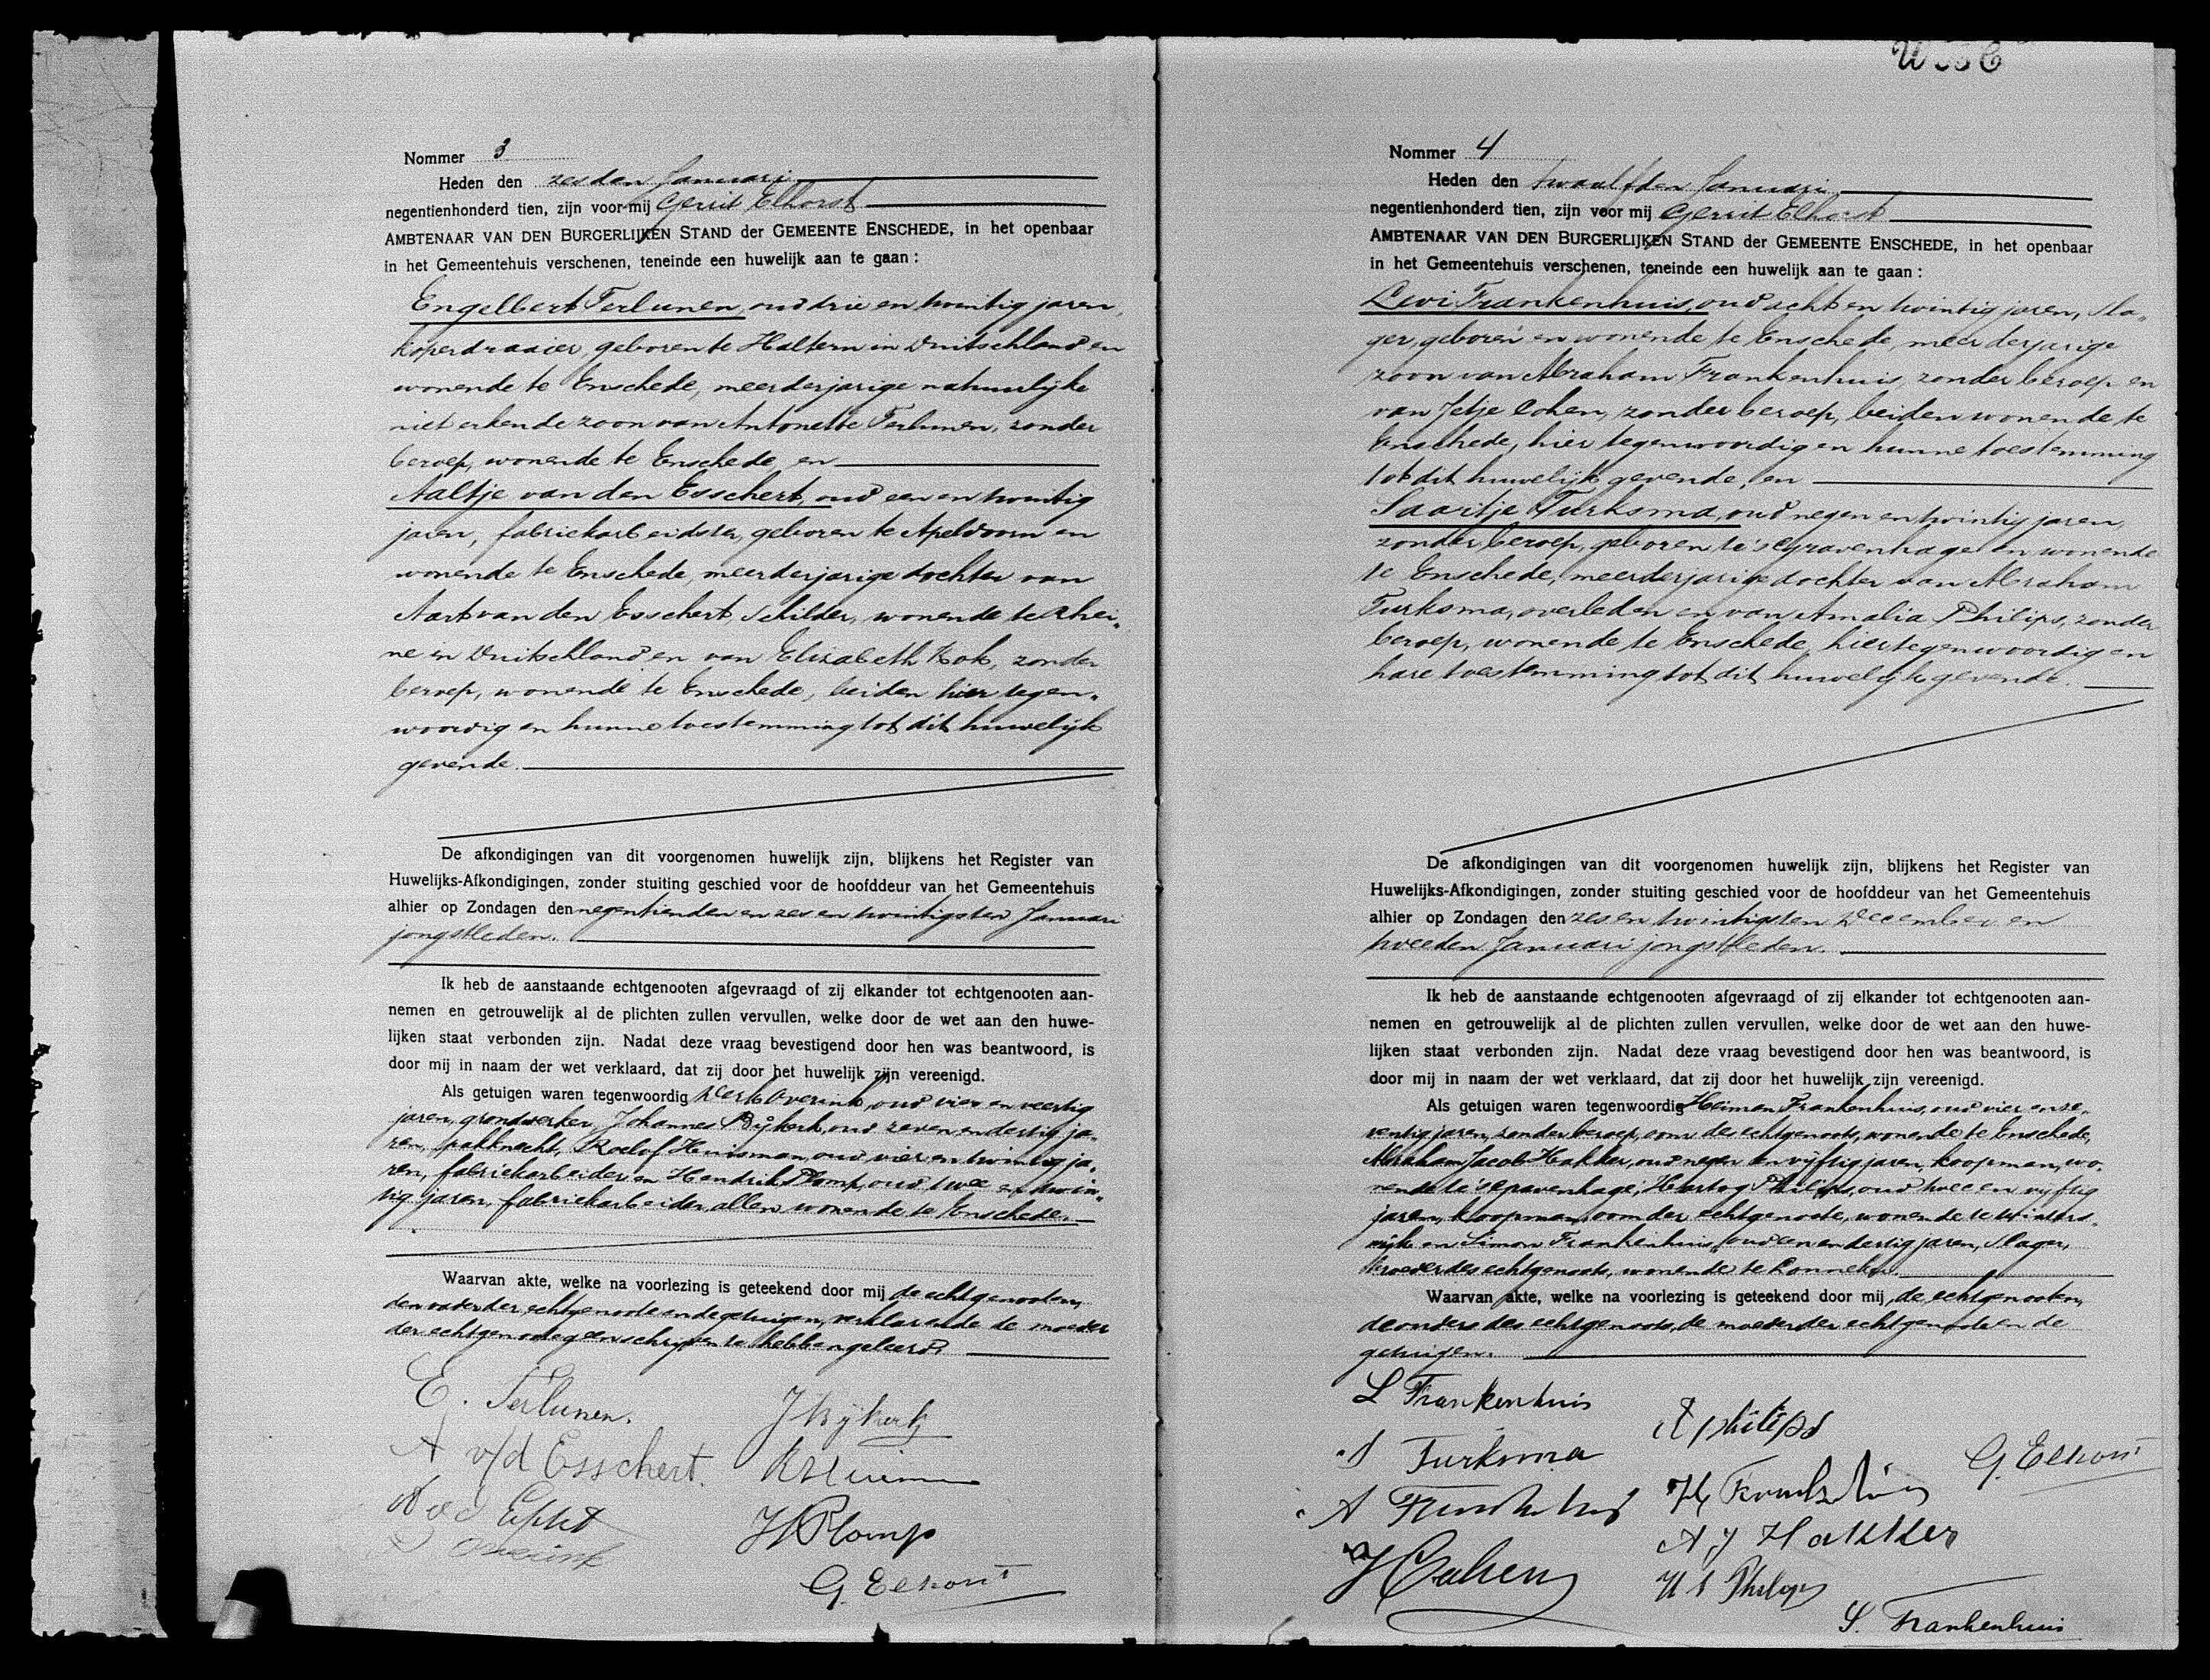 Nommer 3
Heden den zesden Januari
negentienhonderd tien, zijn voor mij Gerrit Elhorst
AMBTENAAR VAN DEN BURGERLIJKEN STAND der GEMEENTE ENSCHEDE, in het openbaar
in het Gemeentehuis verschenen, teneinde een huwelijk aan te gaan:
Engelbert Terlunen, oud drie en twintig jaren,
koperdraaier, geboren te Haltern in Duitschland en
wonende te Enschede, meerderjarige natuurlijke
niet erkende zoon van Antonette Terlunen, zonder
beroep, wonende te Enschede, en
Aaltje van den Esschert, oud een en twintig
jaren, fabriekarbeidster, geboren te Apeldoorn en
wonende te Enschede, meerderjarige dochter van
Aart van den Esschert, schilder, wonende te Rhei„
ne in Duitschland en van Elizabeth Kok, zonder
beroep, wonende te Enschede, beiden hier tegen„
woordig en hunne toestemming tot dit huwelijk
gevende.
De afkondigingen van dit voorgenomen huwelijk zijn, blijkens het Register van
Huwelijks-Afkondigingen, zonder stuiting geschied voor de hoofddeur van het Gemeentehuis
alhier op Zondagen den negentienden en zes en twintigsten Januari
jongstleden.
Ik heb de aanstaande echtgenooten afgevraagd of zij elkander tot echtgenooten aan-
nemen en getrouwelijk al de plichten zullen vervullen, welke door de wet aan den huwe-
lijken staat verbonden zijn. Nadat deze vraag bevestigend door hen was beantwoord, is
door mij in naam der wet verklaard, dat zij door het huwelijk zijn vereenigd.
Als getuigen waren tegenwoordig Derk Overink, oud vier en veertig
jaren, grondwerker, Johannes Bijkerk, oud zeven en dertig ja„
ren, pakknecht, Roelof Huisman, oud vier en twintig ja„
ren, fabriekarbeider en Hendrik Plomp, oud twee en twin„
tig jaren, fabriekarbeider, allen wonende te Enschede.
Waarvan akte, welke na voorlezing is geteekend door mij de echtgenooten,
den vader der echtgenoote en de getuigen, verklarende de moeder
der echtgenoote geen schrijven te hebben geleerd.
E. Terlunen.
J Bijkerk
A v/d Esschert.
R Huisman
H Plomp
G. Elhorst
Nommer 4
Heden den twaalfden Januari
negentienhonderd tien, zijn voor mij Gerrit Elhorst
AMBTENAAR VAN DEN BURGERLIJKEN STAND der GEMEENTE ENSCHEDE, in het openbaar
in het Gemeentehuis verschenen, teneinde een huwelijk aan te gaan:
Levi Frankenhuis, oud acht en twintig jaren, sla„
ger, geboren en wonende te Enschede, meerderjarige
zoon van Abraham Frankenhuis, zonder beroep en
van Jetje Cohen, zonder beroep, beiden wonende te
Enschede, hier tegenwoordig en hunne toestemming
tot dit huwelijk gevende, en
Saartje Turksma, oud negen en twintig jaren,
zonder beroep, geboren te 's Gravenhage en wonende
te Enschede, meerderjarige dochter van Abraham
Turksma, overleden en van Amalia Philips, zonder
beroep, wonende te Enschede, hier tegenwoordig en
hare toestemming tot dit huwelijk gevende.
De afkondigingen van dit voorgenomen huwelijk zijn, blijkens het Register van
Huwelijks-Afkondigingen, zonder stuiting geschied voor de hoofddeur van het Gemeentehuis
alhier op Zondagen den zes en twintigsten December en
tweeden Januari jongstleden.
Ik heb de aanstaande echtgenooten afgevraagd of zij elkander tot echtgenooten aan-
nemen en getrouwelijk al de plichten zullen vervullen, welke door de wet aan den huwe-
lijken staat verbonden zijn. Nadat deze vraag bevestigend door hen was beantwoord, is
door mij in naam der wet verklaard, dat zij door het huwelijk zijn vereenigd.
Als getuigen waren tegenwoordig Heiman Frankenhuis, oud vier en ze„
ventig jaren, zonder beroep, oom des echtgenoots, wonende te Enschede,
Abraham Jacob Hakker, oud negen en vijftig jaren, koopman, wo„
nende te 's Gravenhage, Hartog Philips, oud twee en vijftig
jaren, koopman, oom der echtgenoote, wonende te Winters„
wijk en Simon Frankenhuis, oud een en dertig jaren, slager,
broeder des echtgenoots, wonende te Lonneker.
Waarvan akte, welke na voorlezing is geteekend door mij, de echtgenooten,
de ouders des echtgenoots, de moeder der echtgenoote en de
getuigen.
L Frankenhuis
A philips
S Turksma
G. Elhorst
A J Hakker
J Cohen
H S Philips
S. Frankenhuis